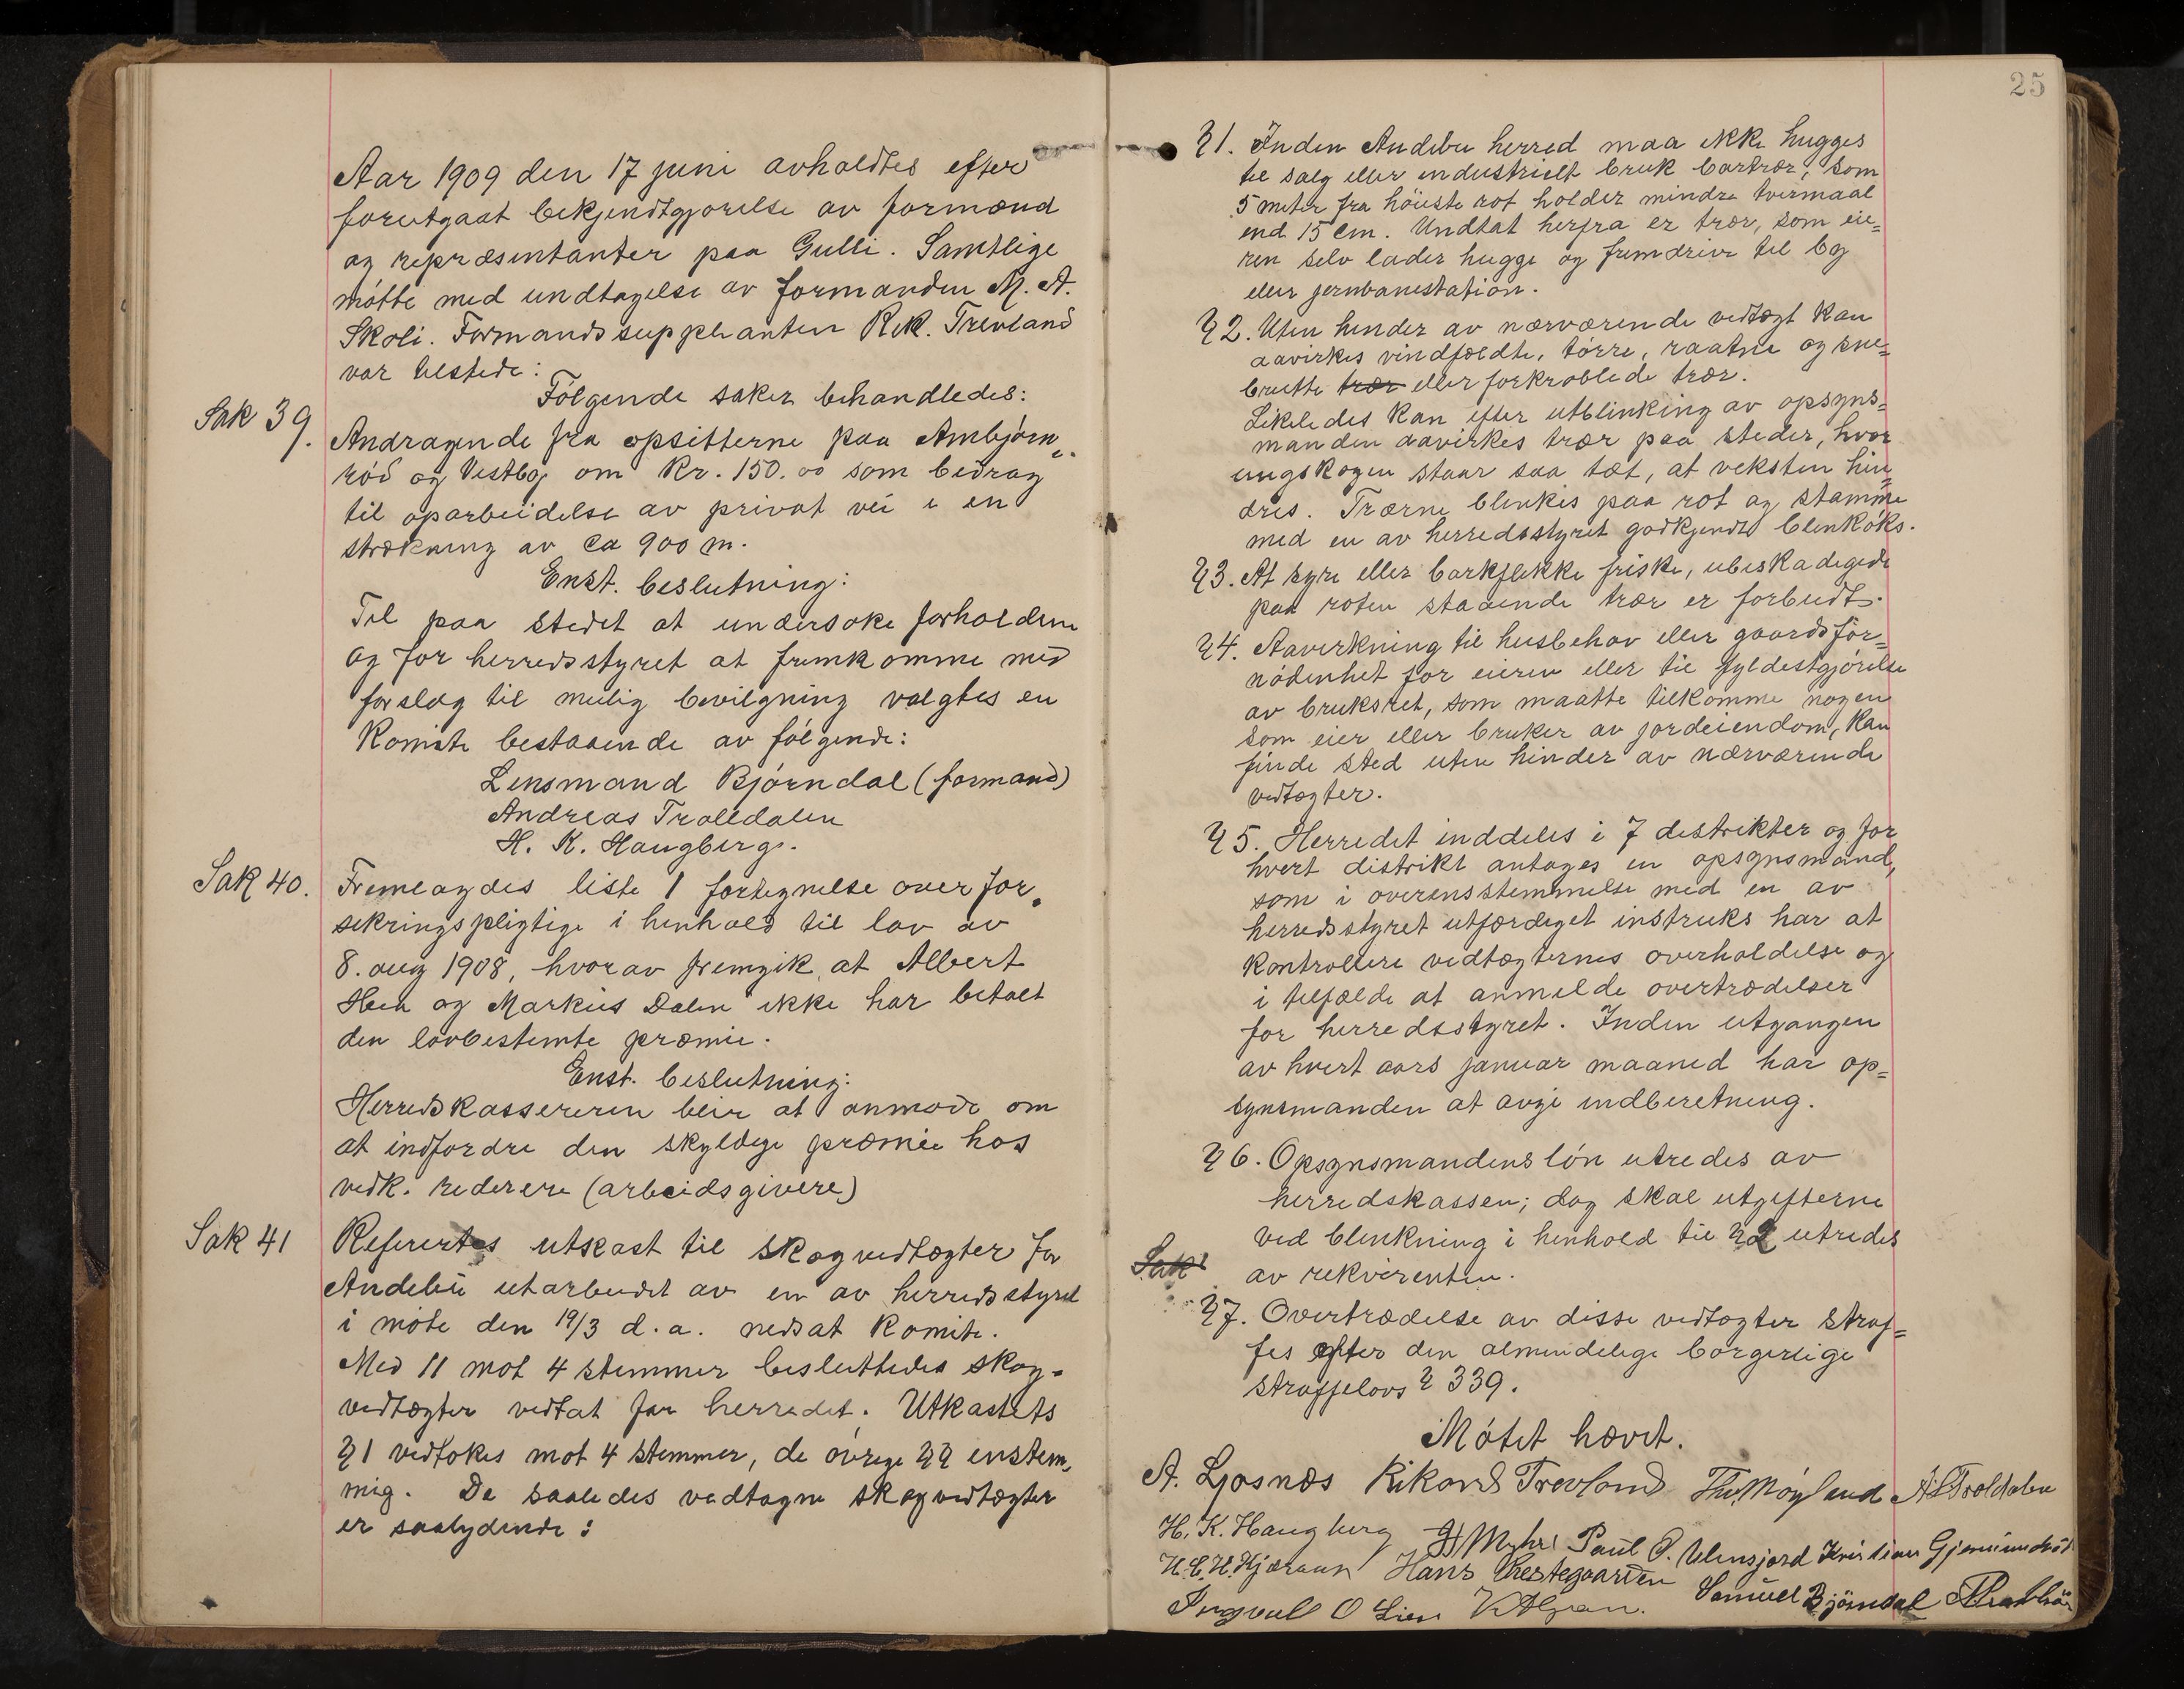 Aar 1909 den 17 juni avholdtes efter
forutgaat bekjendtgjørelse av formænd
og repræsentanter paa Gulli. Samtlige
møtte med undtagelse av formanden M. A.
Skoli. Formandssupplianten Rik. Trevland
var tilstede:
Følgende saker behandledes:
Sak 39.
Andragende fra opsitterne paa Ambjørn„
rød og Vestby om Kr. 150.00 som bidrag
til oparbeidelse av privat vei i en
strækning av ca 900 m.
Enst. beslutning:
Til paa stedet at undersøke forholdene
og for herredsstyret at fremkomme med
forslag til mulig bevilgning valgtes en
Komite bestaaende av følgende:
Lensmand Bjørndal (formand)
Andreas Trolldalen
H. K. Haugberg.
Sak 40.
Fremlagdes liste 1 fortegnelse over for„
sekringspligtige i henhold til lov av
8. aug 1908, hvorav fremgik at Albert
og Markus Dalen ikke har betalt
den lovbestemte præmie.
Enst. beslutning:
Herredskassereren blir at anmode om
at indfordre den skyldige præmie hos
vedk. redere (arbeidsgivere)
Sak 41
Referertes utkast til skogvedtægter for
Andebu utarbeidet av en av herredsstyret
i møte den 19/3 d.a. nedsat Komite.
Med 11 mot 4 stemmer besluttedes skog-
vedtægter vedtat for herredet. Utkastets
§1 vedtokes mot 4 stemmer, de øvrige §§ enstem„
mig. De saaledes vedtagne skogvedtægter
er saalydende:
25
§1. Inden Andebu herred maa ikke hugges
til salg eller industrielt bruk bartrær, som
5 meter fra høieste rot holder mindre tvermaal
end 15 cm. Undtat herfra er trær, som eie=
ren selv lader hugge og fremdrive til by
eller jernbanestation.
§2. Uten hinder av nærværende vedtægt kan
aavirkes vindfældte, tørre, raatne og sne=
brutte trær eller forkrøblede trær.
Likeledes kan efter utblinking av opsyns=
manden aavirkes trær paa steder, hvor
ungskogen staar saa tæt, at veksten hin„
dres. Trærne blinkes paa rot og stamme
med en av herredsstyret godkjendt blinkøks.
§3. At syre eller barkflekke friske, ubeskadigede
paa roten staaende trær er forbudt.
§4. Aavirkning til husbehov eller gaardsfor=
nødenhet for eieren eller til fyldestgjørelse
av bruksret, som maatte tilkomme nogen
som eier eller bruker av jordeiendom, kan
finde sted uten hinder av nærværende
vedtægter.
§5. Herredet inddeles i 7 distrikter og for
hvert distrikt antages en opsynsmand,
som i overensstemmelse med en av
herredsstyret utfærdiget instruks har at
kontrollere vedtægternes overholdelse og
i tilfælde at anmelde overtrædelser
for herredsstyret. Inden utgangen
av hvert aars januar maaned har op=
synsmanden at avgi indberetning.
§6. Opsynsmandens løn utredes av
herredskassen; dog skal utgifterne
ved blinkning i henhold til §2 utredes
Sak
av rekvirenten.
§7. Overtrædelse av disse vedtægter straf=
fes efter den almindelige borgerlige
straffelovs § 339.
Møtet hævet.
A. Ljosnæs Rikard Trevland Th. Møyland A. Trolldalen
H. K. Haugberg Myhre Paul O. Ulensjord Kristian Gjermundrød
H. E. H. Kjæraas Hans Prestegaarden Samuel Bjørndal
Ingvall O Lien